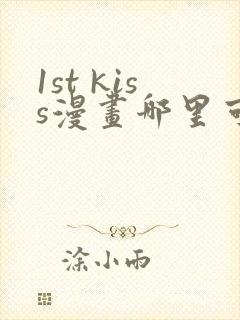 1st kis
s漫畫哪里可
涂小雨